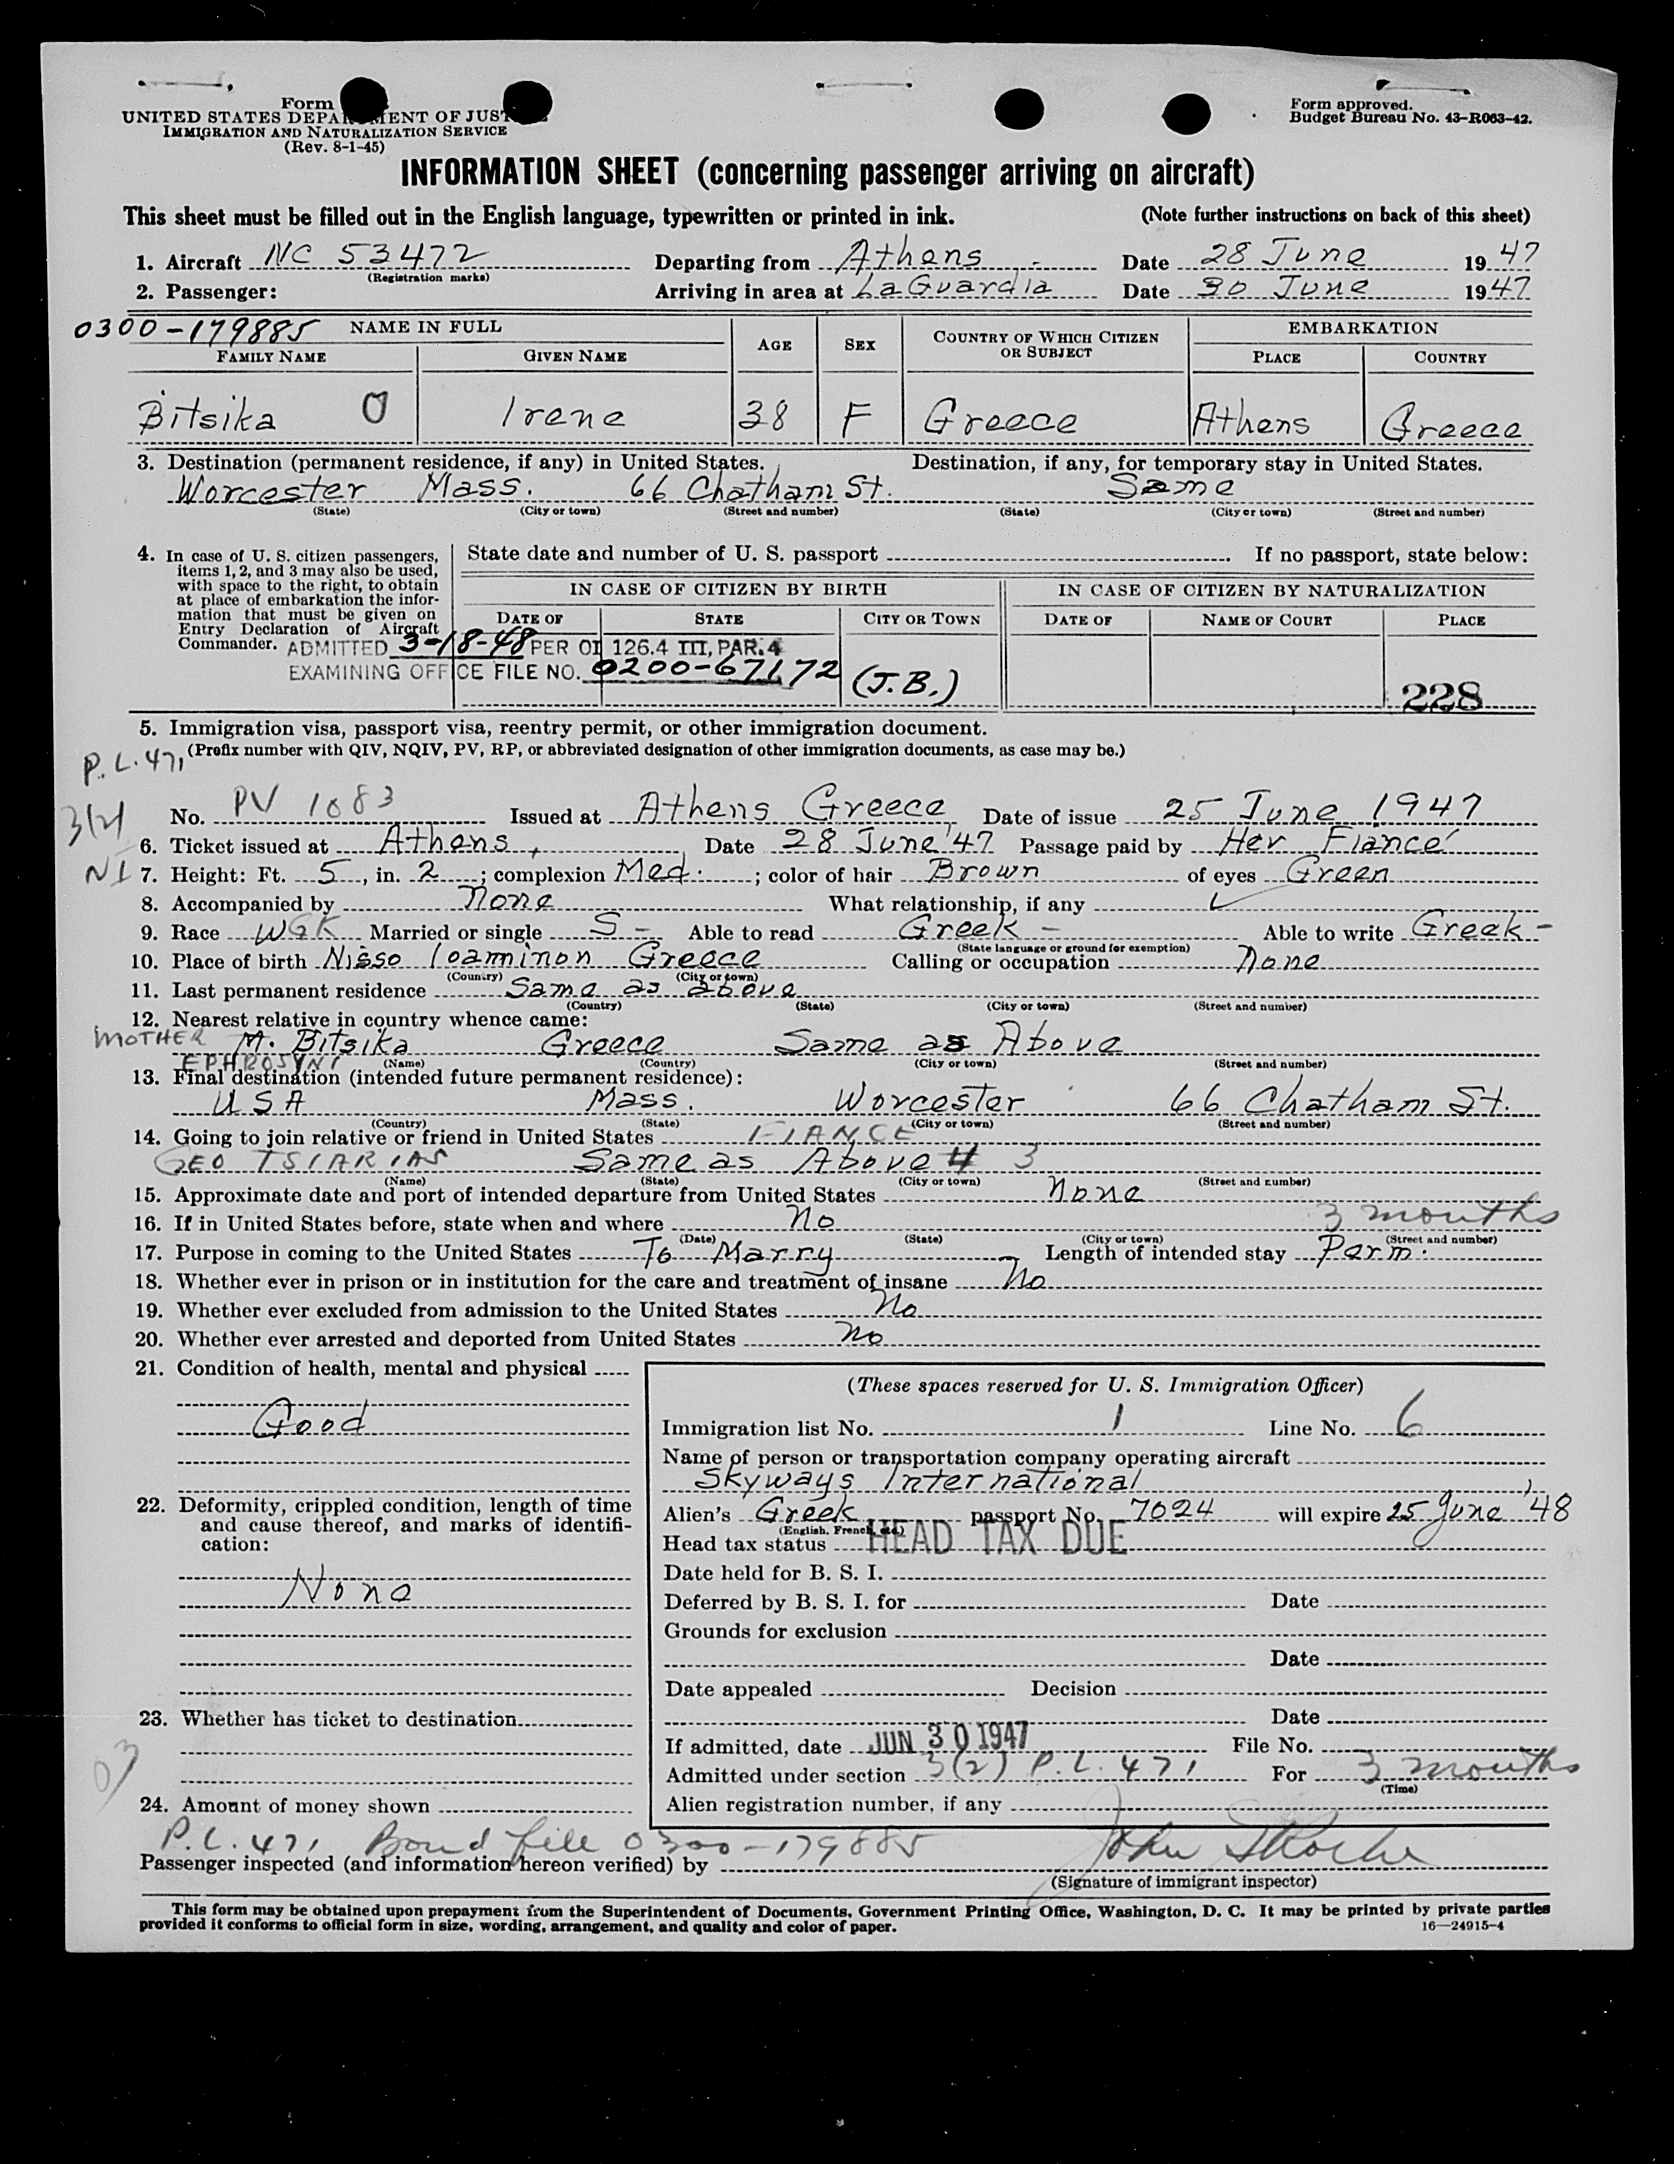 Form
UNITED STATES DEPARTMENT OF JUSTICE
IMMIGRATION AND NATURALIZATION SERVICE
(Rev. 8-1-45)
Form approved.
Budget Bureau No. 43-R063-42.
INFORMATION SHEET (concerning passenger arriving on aircraft)
This sheet must be filled out in the English language, typewritten or printed in ink. (Note further instructions on back of this sheet)
1. Aircraft NC 53472 Departing from Athens Date 28 June 1947
(Registration marks)
2. Passenger: Arriving in area at LaGuardia Date 30 June 1947
0300-179885 NAME IN FULL AGE SEX COUNTRY OF WHICH CITIZEN OR SUBJECT EMBARKATION
FAMILY NAME GIVEN NAME PLACE COUNTRY
Bitsika O Irene 38 F Greece Athens Greece
3. Destination (permanent residence, if any) in United States. Destination, if any, for temporary stay in United States.
Worcester Mass. 66 Chatham St. Same
(State) (City or town) (Street and number) (State) (City or town) (Street and number)
4. In case of U. S. citizen passengers, items 1, 2, and 3 may also be used, with space to the right, to obtain at place of embarkation the information that must be given on Entry Declaration of Aircraft Commander.
State date and number of U. S. passport If no passport, state below:
IN CASE OF CITIZEN BY BIRTH IN CASE OF CITIZEN BY NATURALIZATION
DATE OF STATE CITY OR TOWN DATE OF NAME OF COURT PLACE
ADMITTED 3-18-48 PER OI 126.4 III, PAR. 4
EXAMINING OFFICE FILE NO. 0200-67172 (J.B.)
228
5. Immigration visa, passport visa, reentry permit, or other immigration document.
P.L. 471 (Prefix number with QIV, NQIV, PV, RP, or abbreviated designation of other immigration documents, as case may be.)
3(2) No. PV 1083 Issued at Athens Greece Date of issue 25 June 1947
6. Ticket issued at Athens, Date 28 June '47 Passage paid by Her Fiancé
NI 7. Height: Ft. 5, in. 2; complexion Med.; color of hair Brown of eyes Green
8. Accompanied by None What relationship, if any
9. Race WGK Married or single S - Able to read Greek - Able to write Greek -
(State language or ground for exemption)
10. Place of birth Nisso Ioaminon Greece Calling or occupation None
(Country) (City or town)
11. Last permanent residence Same as above
(Country) (State) (City or town) (Street and number)
12. Nearest relative in country whence came:
MOTHER M. Bitsika Greece Same as Above
EPHROSYNI (Name) (Country) (City or town) (Street and number)
13. Final destination (intended future permanent residence):
USA Mass. Worcester 66 Chatham St.
(Country) (State) (City or town) (Street and number)
14. Going to join relative or friend in United States FIANCE
GEO TSIARIAS Same as Above 4 3
(Name) (State) (City or town) (Street and number)
15. Approximate date and port of intended departure from United States None
16. If in United States before, state when and where No 3 months
(Date) (State) (City or town) (Street and number)
17. Purpose in coming to the United States To Marry Length of intended stay Perm.
18. Whether ever in prison or in institution for the care and treatment of insane No
19. Whether ever excluded from admission to the United States No
20. Whether ever arrested and deported from United States No
21. Condition of health, mental and physical
Good
22. Deformity, crippled condition, length of time and cause thereof, and marks of identification:
None
23. Whether has ticket to destination
03
24. Amount of money shown
(These spaces reserved for U. S. Immigration Officer)
Immigration list No. 1 Line No. 6
Name of person or transportation company operating aircraft
Skyways International
Alien's Greek passport No. 7024 will expire 25 June '48
(English, French, etc.)
Head tax status HEAD TAX DUE
Date held for B. S. I.
Deferred by B. S. I. for Date
Grounds for exclusion
Date
Date appealed Decision
Date
If admitted, date JUN 30 1947 File No.
Admitted under section 3(2) P.L. 471 For 3 months
(Time)
Alien registration number, if any
P.L. 471 Bond file 0300-179885
Passenger inspected (and information hereon verified) by John
(Signature of immigrant inspector)
This form may be obtained upon prepayment from the Superintendent of Documents, Government Printing Office, Washington, D. C. It may be printed by private parties
provided it conforms to official form in size, wording, arrangement, and quality and color of paper. 16—24915-4